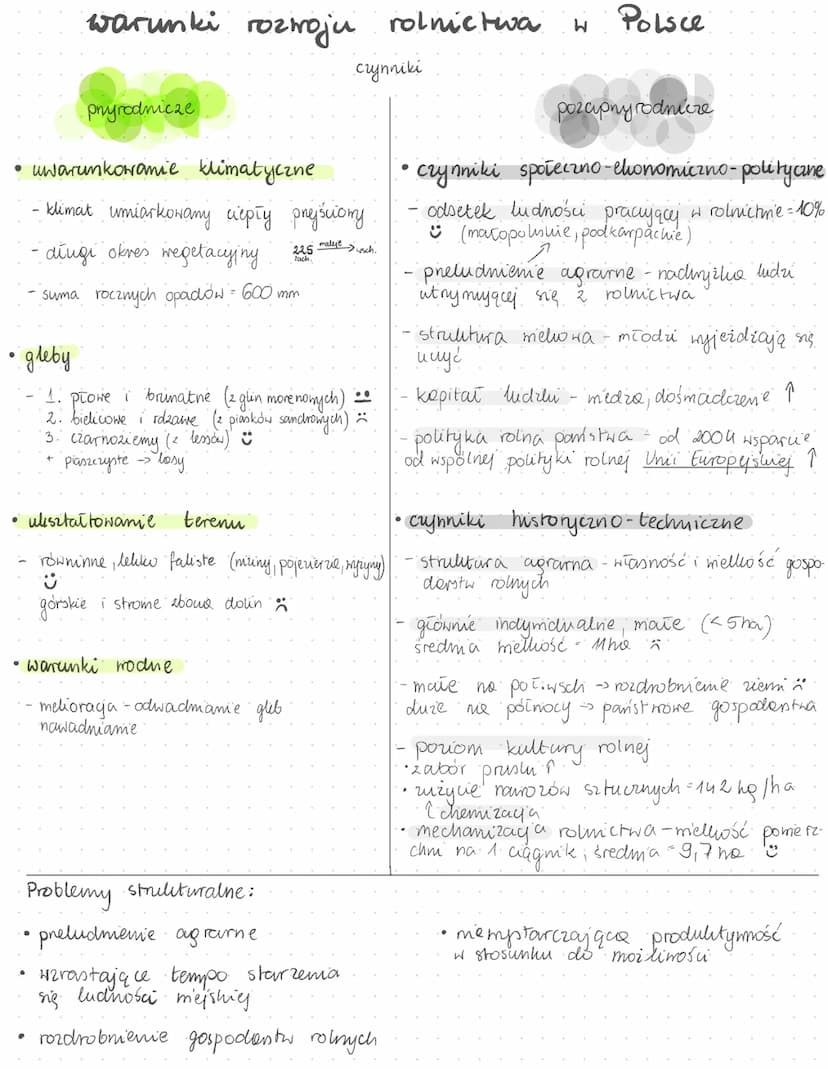 warunki rozwoju rolnictwa w Polsce
czynniki
przyrodnicze
• uwarunkowanie klimatyczne
- klimat umiarkowany ciepły przejściowy
- długi okres wegetacyjny 225 zach. maleje → wsch.
- suma rocznych opadów = 600 mm
• gleby
- 1. płowe i brunatne (z glin morenowych)
2. bielicowe i rdzawe (z piasków sandrowych)
3. czarnoziemy (z lessów)
+ piaszczyste → lasy
• ukształtowanie terenu
- równinne, lekko faliste (niziny, pojezierza, wyżyny)
górskie i strome zbocza dolin
• warunki wodne
- melioracja - odwadnianie gleb
nawadnianie
pozaprzyrodnicze
• czynniki społeczno-ekonomiczno-polityczne
- odsetek ludności pracującej w rolnictwie = 10%
(małopolskie, podkarpackie)
- przeludnienie agrarne - nadwyżka ludzi
utrzymującej się z rolnictwa
- struktura wiekowa - młodzi wyjeżdżają się
uczyć
- kapitał ludzki - wiedza, doświadczenie ↑
- polityka rolna państwa - od 2004 wsparcie
od wspólnej polityki rolnej Unii Europejskiej ↑
• czynniki historyczno-techniczne
- struktura agrarna - własność i wielkość gospo-
darstw rolnych
- głównie indywidualne, małe (<5ha)
średnia wielkość = 11ha
- małe na poł.wsch → rozdrobnienie ziemi
duże na północy → państwowe gospodarstwa
- poziom kultury rolnej
• zabór pruski ↑
• zużycie nawozów sztucznych = 142 kg/ha
chemizacja
• mechanizacja rolnictwa - wielkość powierz-
chni na 1 ciągnik, średnia = 9,7 ha
Problemy strukturalne:
• przeludnienie agrarne
• wzrastające tempo starzenia
się ludności wiejskiej
• rozdrobnienie gospodarstw rolnych
• niewystarczająca produktywność
w stosunku do możliwości